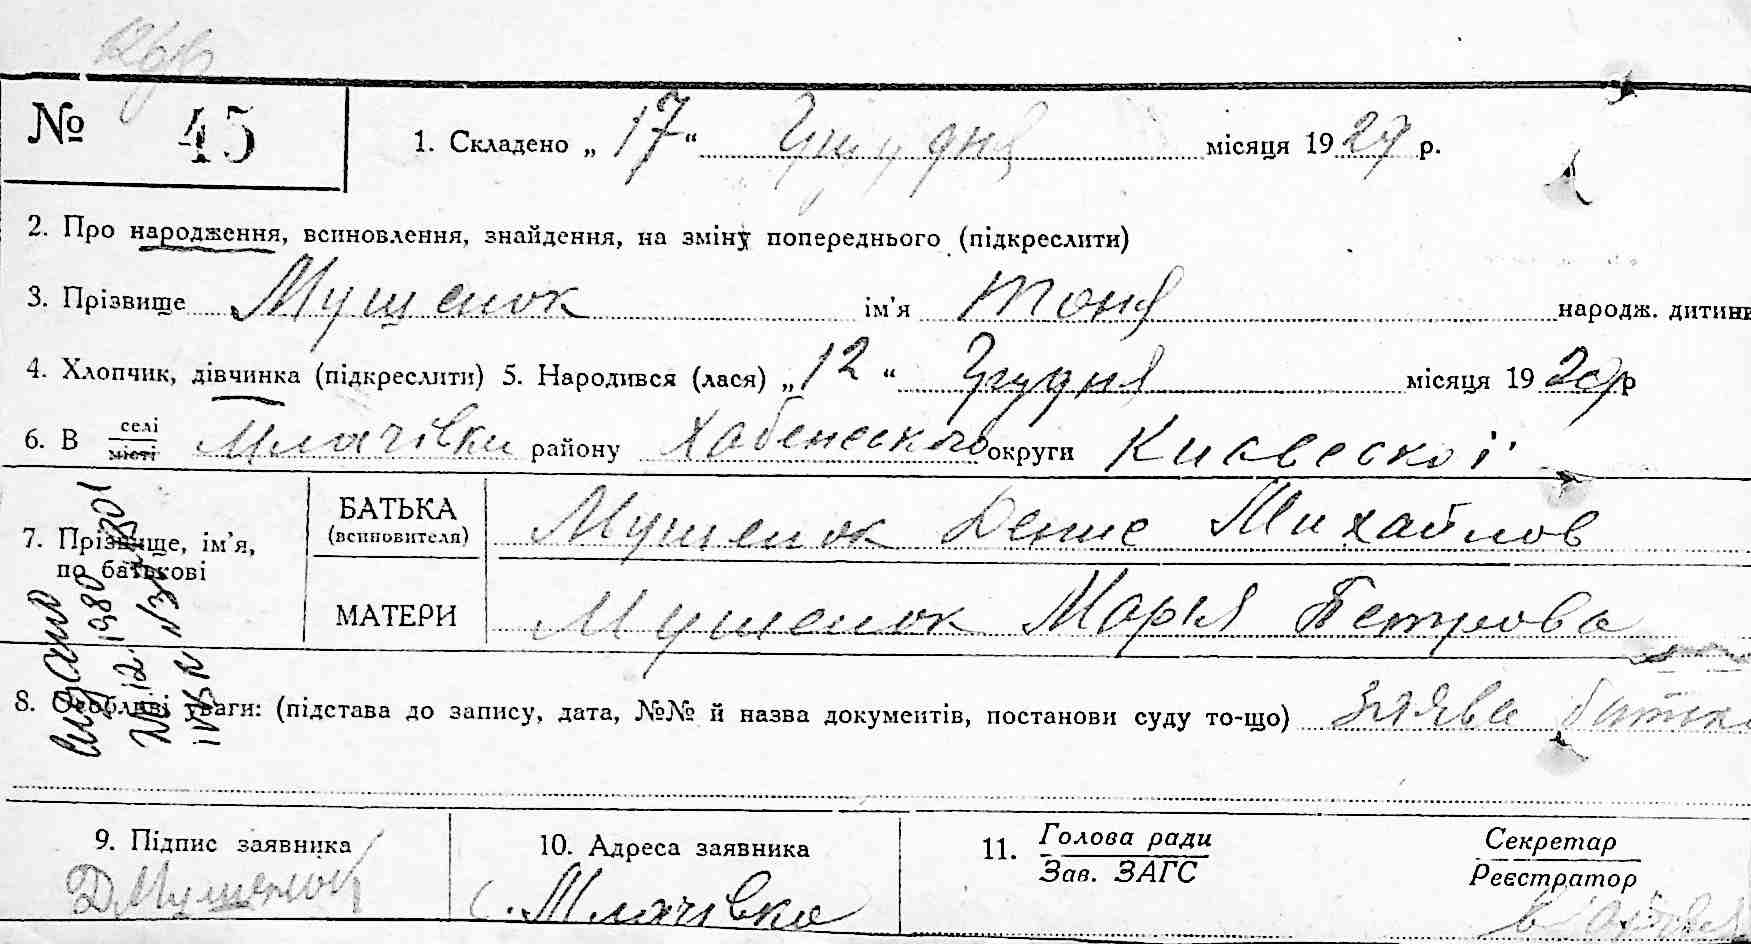 № 45
1. Складено „ 17 “ Грудня місяця 1929 р.
2. Про народження, всиновлення, знайдення, на зміну попереднього (підкреслити)
3. Прізвище Мушенок ім'я Тоня народж. дитини
4. Хлопчик, дівчинка (підкреслити) 5. Народився (лася) „ 12 “ Грудня місяця 1929 р
6. В селі місті Млачівки району Хабенеского округи Киевескої
7. Прізвище, ім'я, по батькові
БАТЬКА (всиновителя) Мушенок Денис Михайлов
МАТЕРИ Мушенок Марія Петрова
8. Особливі уваги: (підстава до запису, дата, №№ й назва документів, постанови суду то-що) Заява батька
9. Підпис заявника
Д Мушенок
10. Адреса заявника
с. Млачівка
11. Голова ради
Зав. ЗАГС
Секретар
Реєстратор